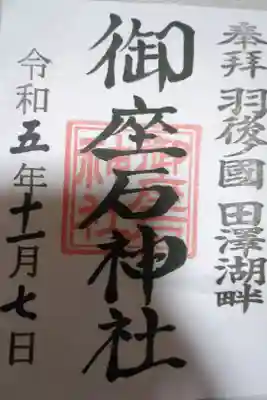 奉拝 羽後ノ國 田澤湖畔
御座石神社
令和五年十一月七日